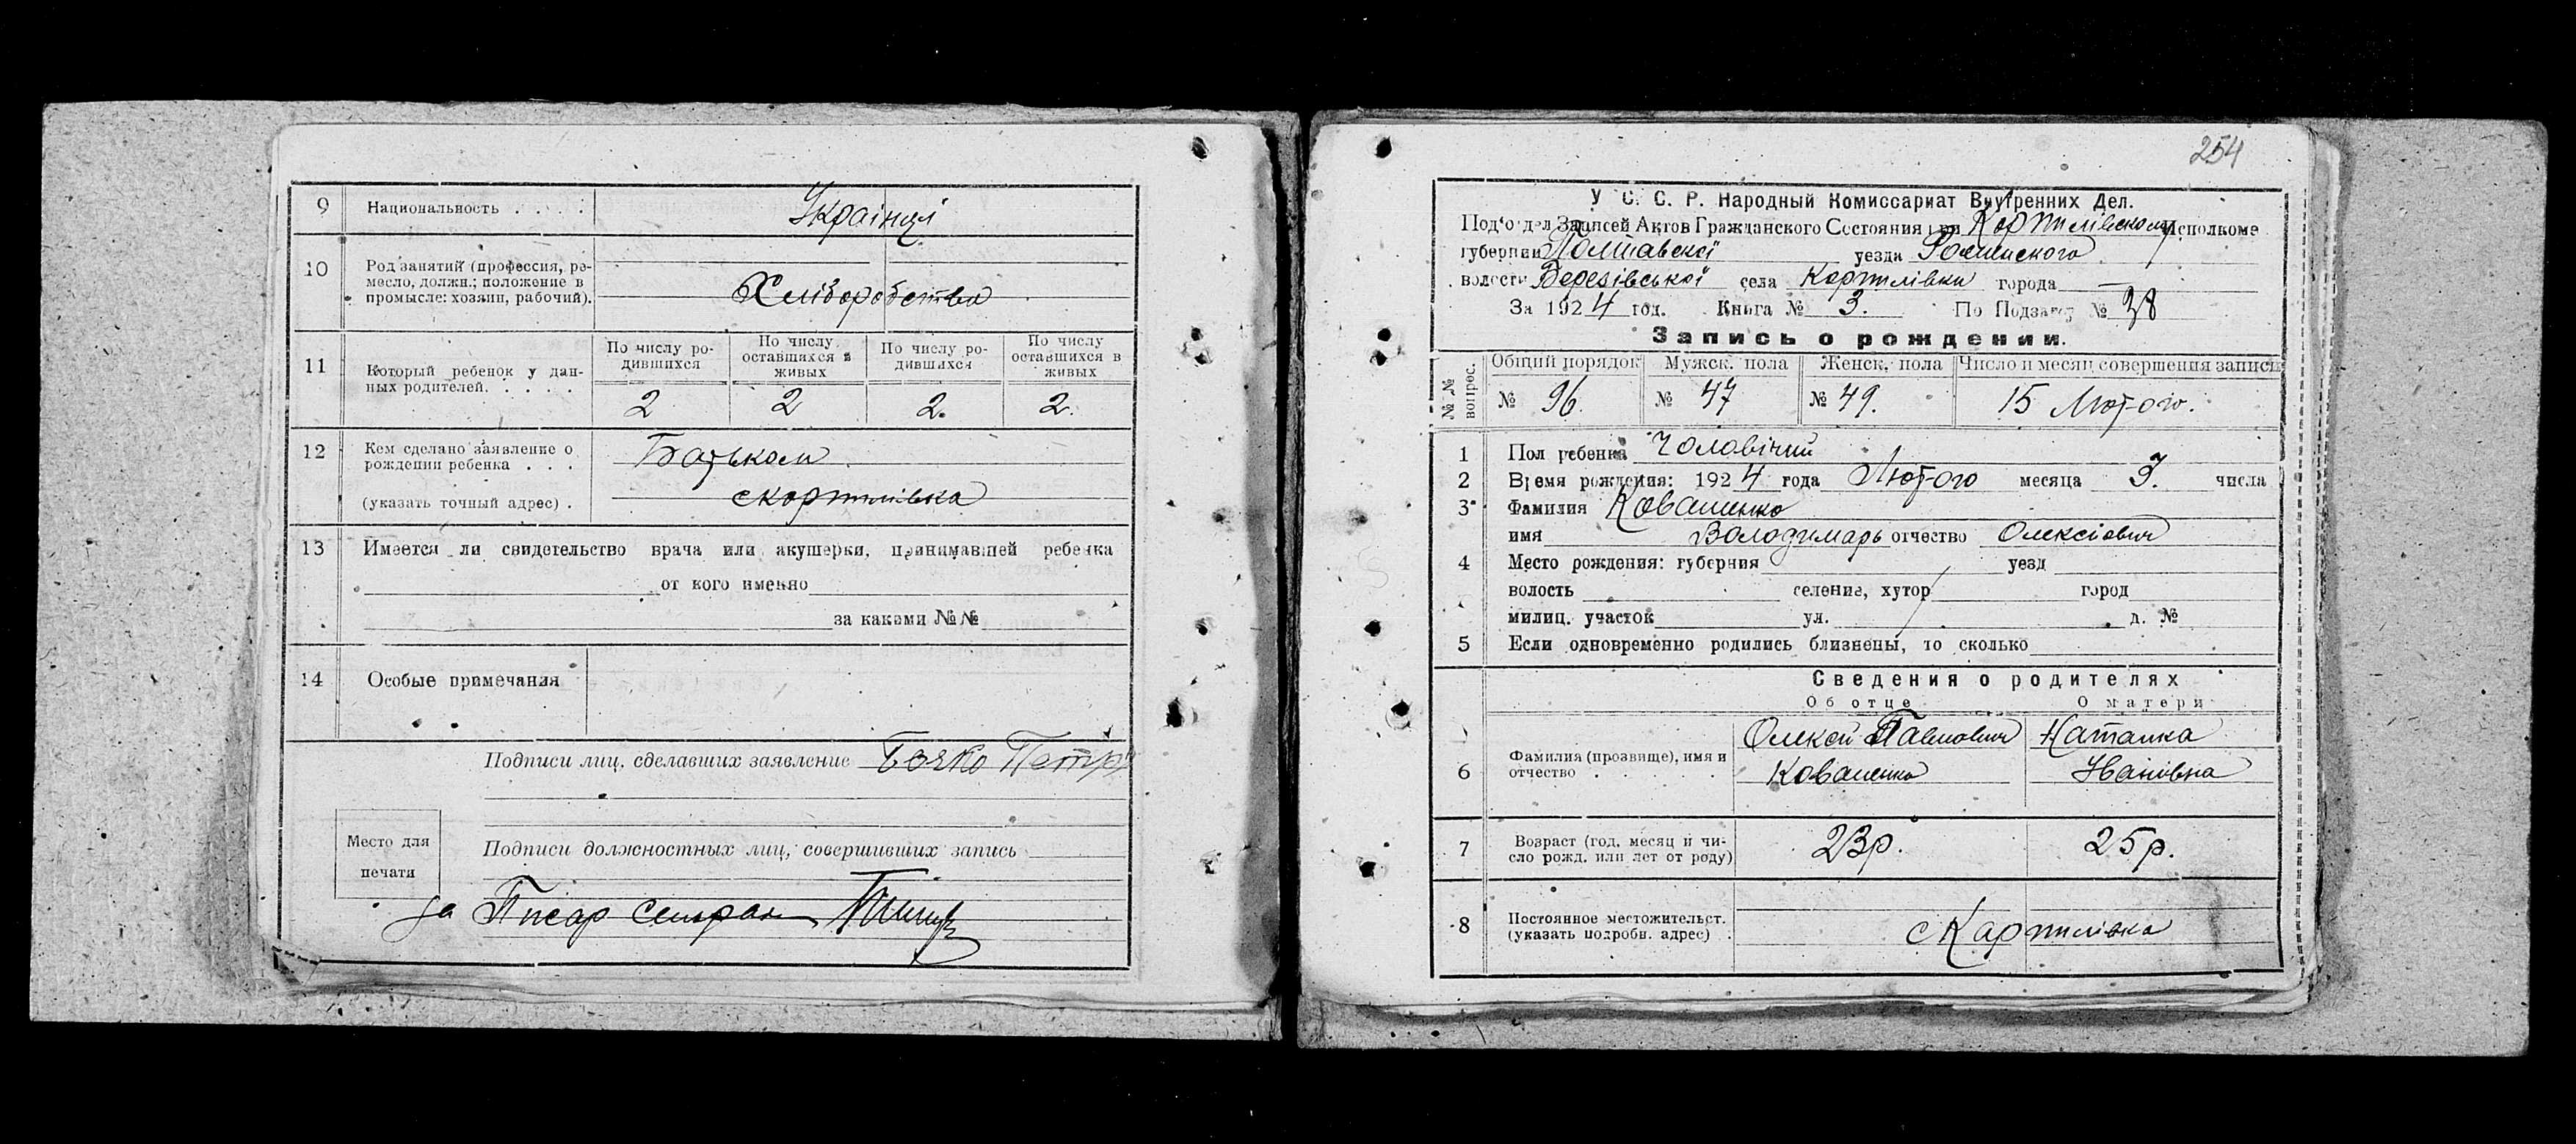 9 Национальность . . . . Українці
10 Род занятий (профессия, ре-
месло, должн.; положение в
промысле: хозяин, рабочий). Хліборобство
11 Который ребенок у дан-
ных родителей. . . . .
По числу ро-
дившихся
По числу
оставшихся в
живых
По числу ро-
дившихся
По числу
оставшихся в
живых
2 2 2. 2.
12 Кем сделано заявление о
рождении ребенка . . . Батьком
(указать точный адрес) . с Кортилівка
13 Имеется ли свидетельство врача или акушерки, принимавшей ребенка
от кого именно
за какими №№
14 Особые примечания
Подписи лиц, сделавших заявление Бочко Петро
Место для
печати
Подписи должностных лиц, совершивших запись
за Писар
254
У С. С. Р. Народный Комиссариат Внутренних Дел.
Под'отдел Записей Актов Гражданского Состояния при Исполкоме
губернии Полтавскої уезда Роменского
волости Березівської села города —
За 1924 год. Книга № 3. По Подзагсу № 38
Запись о рождении.
№№ вопрос.
Общий порядок Мужск. пола Женск. пола Число и месяц совершения записи
№ 96. № 47 № 49. 15 Лютого.
1 Пол ребенка Чоловічий
2 Время рождения: 1924 года Лютого месяца 3. числа
3 Фамилия Коваленко
имя Володимарь отчество Олексіович
4 Место рождения: губерния уезд
волость селение, хутор город
милиц. участок ул. д. №
5 Если одновременно родились близнецы, то сколько
Сведения о родителях
Об отце О матери
6 Фамилия (прозвище), имя и
отчество . . .
Олексій Павлович
Коваленко
Наталка
Іванівна
7 Возраст (год, месяц и чи-
сло рожд. или лет от роду) 23р. 25р.
8 Постоянное местожительст.
(указать подробн. адрес) .